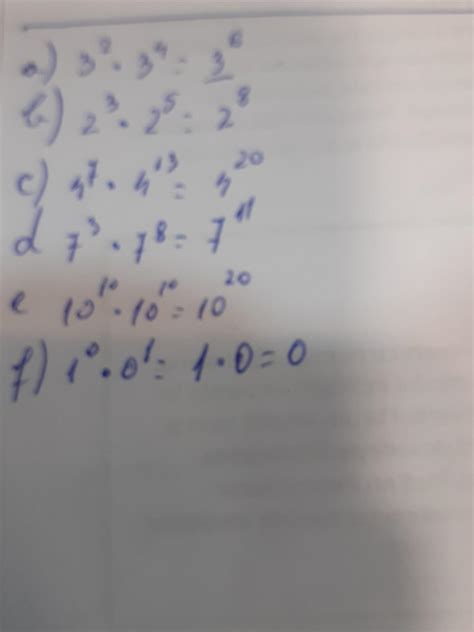 a) 3² · 3⁴ = 3⁶
b) 2³ · 2⁵ = 2⁸
c) 4⁷ · 4¹³ = 4²⁰
d 7³ · 7⁸ = 7¹¹
e 10¹⁰ · 10¹⁰ = 10²⁰
f) 1⁰ · 0¹ = 1 · 0 = 0